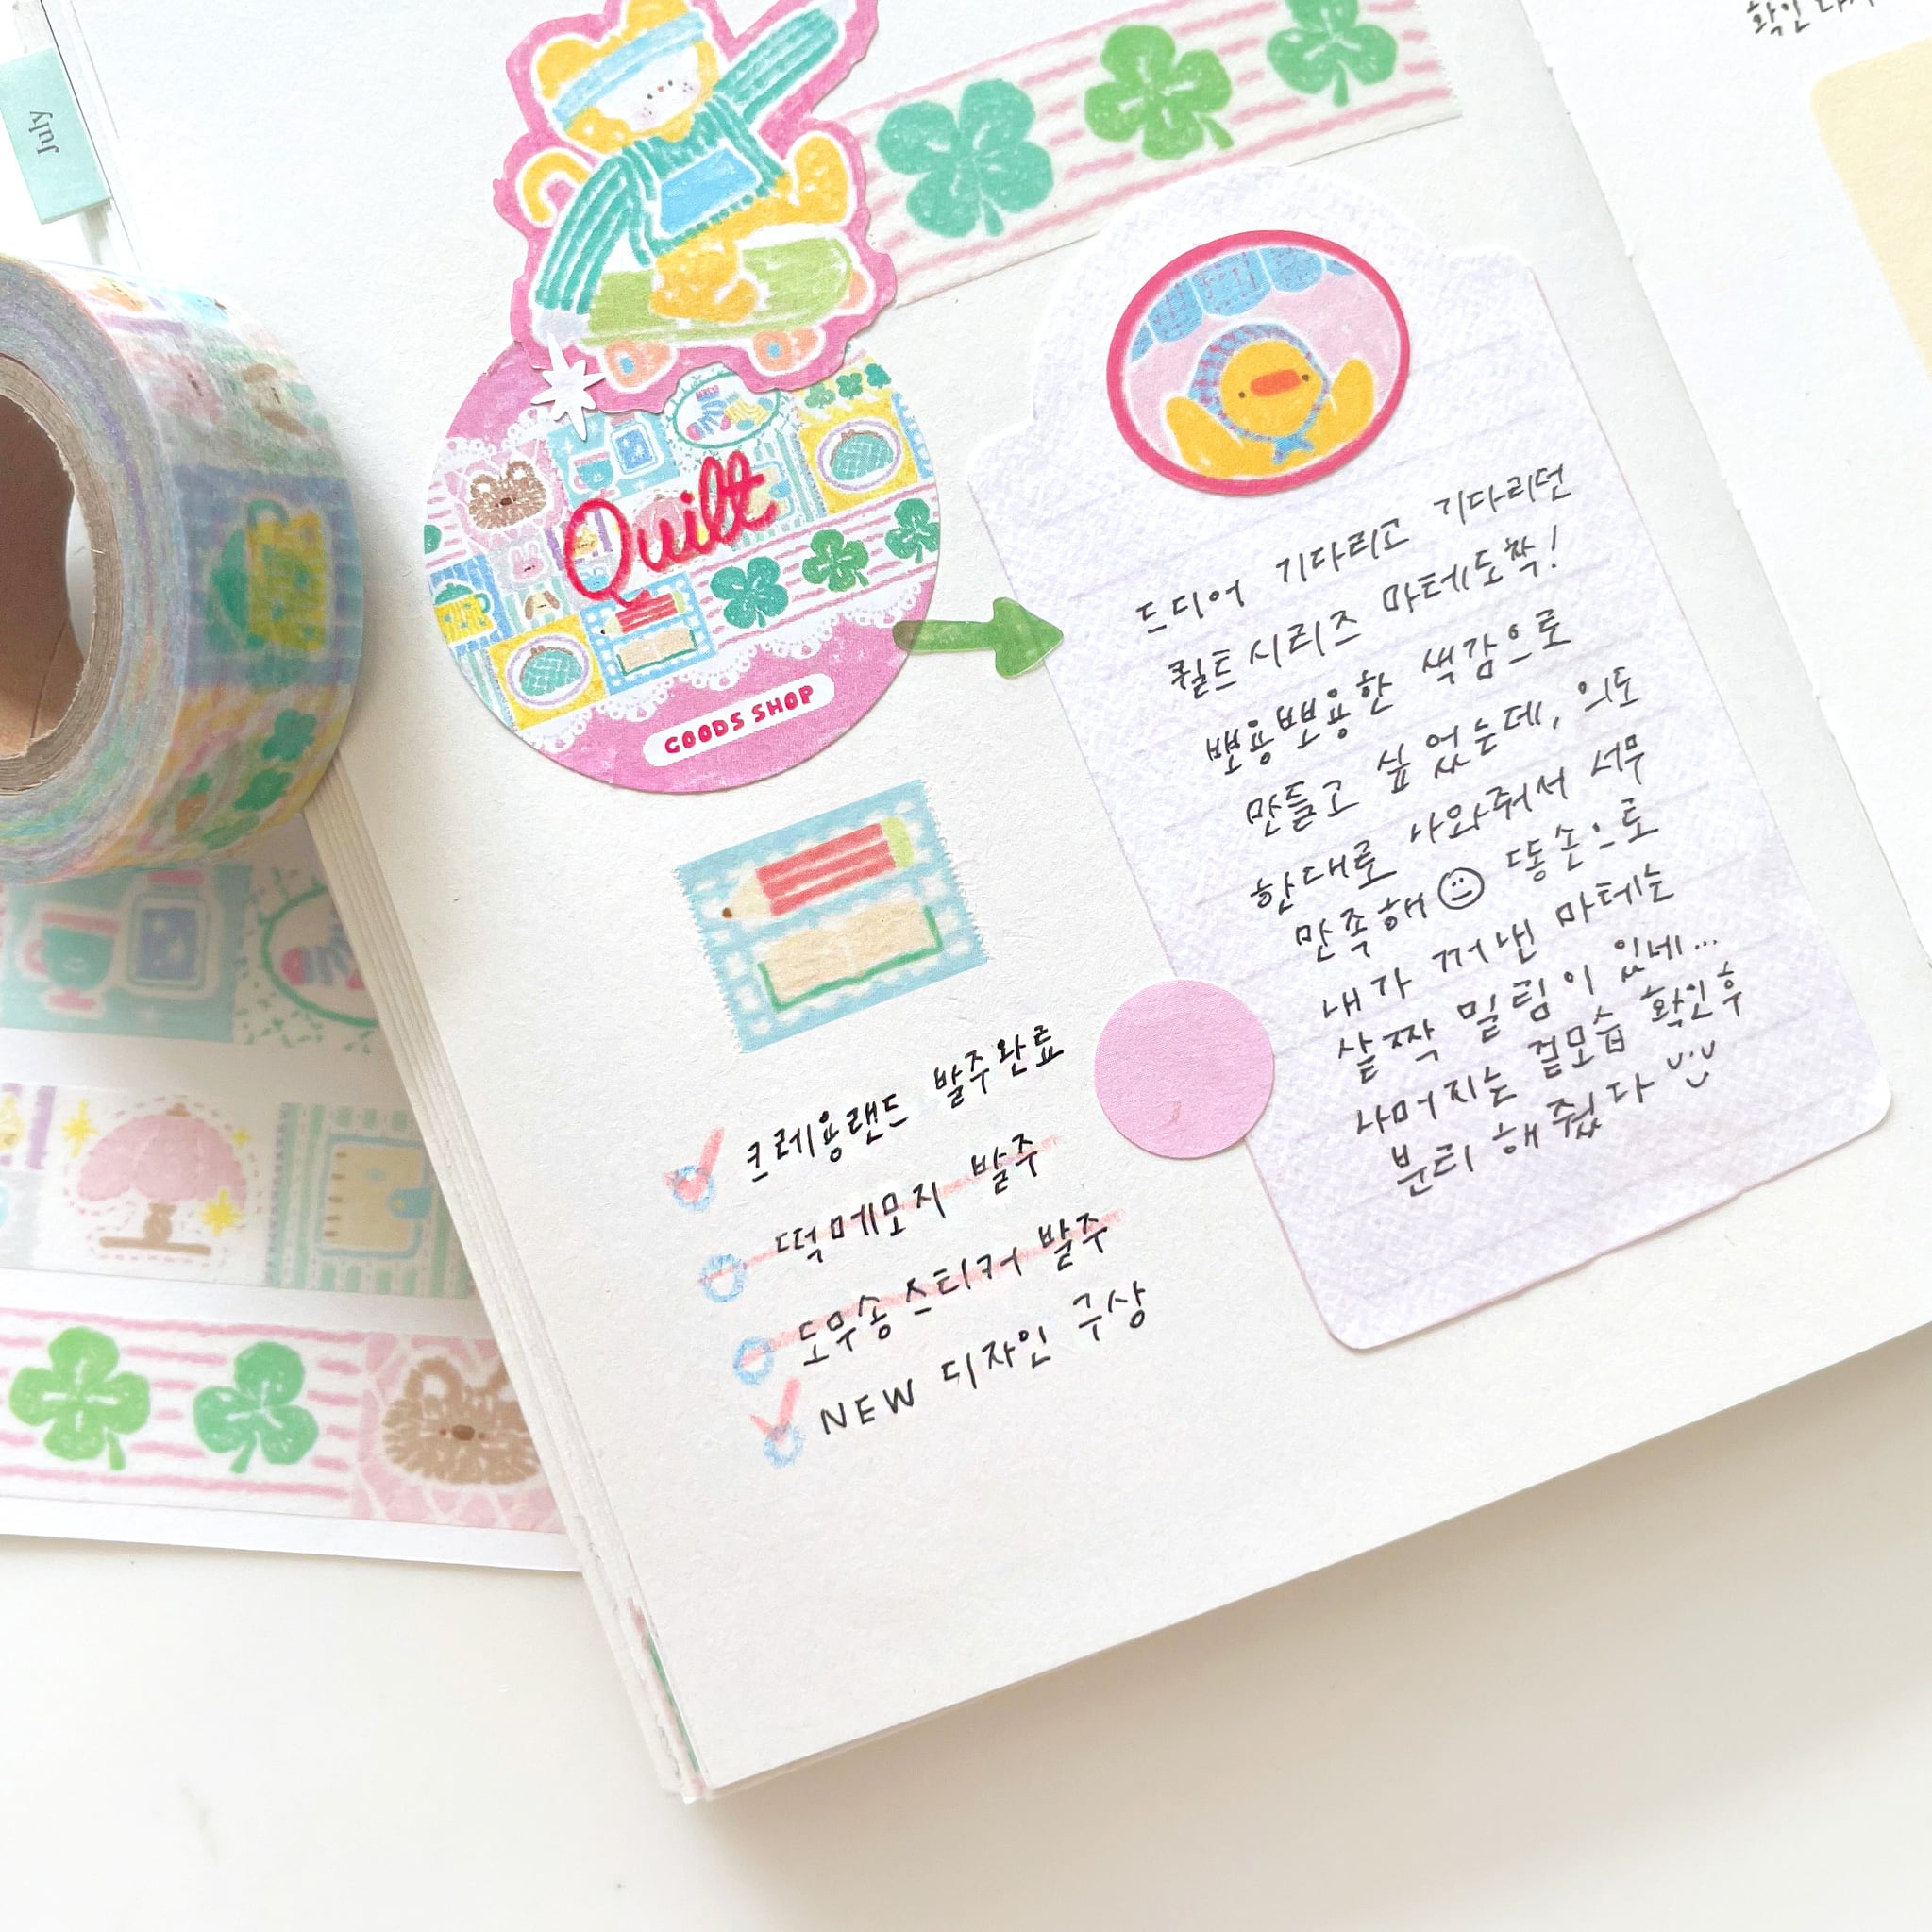 July
확인
Quilt
GOODS SHOP
드디어 기다리고 기다리던
퀼트시리즈 마테도착!
뽀용뽀용한 색감으로
만들고 싶었는데, 의도
한대로 나와줘서 너무
만족해 똥손으로
내가 꺼낸 마테는
살짝 밀림이 있네...
나머지는 겉모습 확인후
분리해줬다
크레용랜드 발주완료
떡메모지 발주
도무송스티커 발주
NEW 디자인 구상